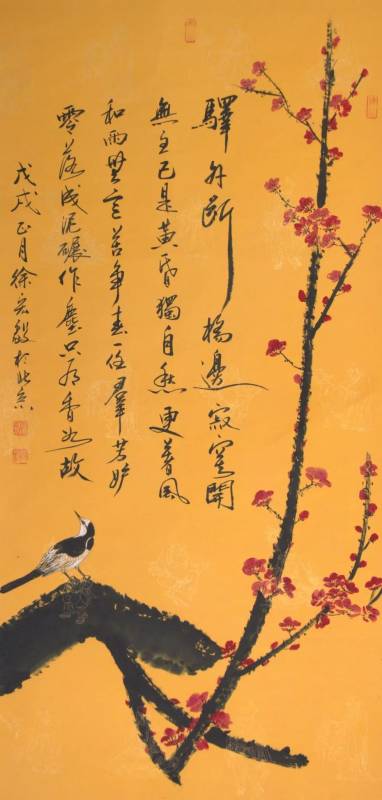 驛外斷橋邊寂寞開
無主已是黃昏獨自愁更著風
和雨無意苦爭春一任羣芳妒
零落成泥碾作塵只有香如故
戊戌正月徐宏毅於北京